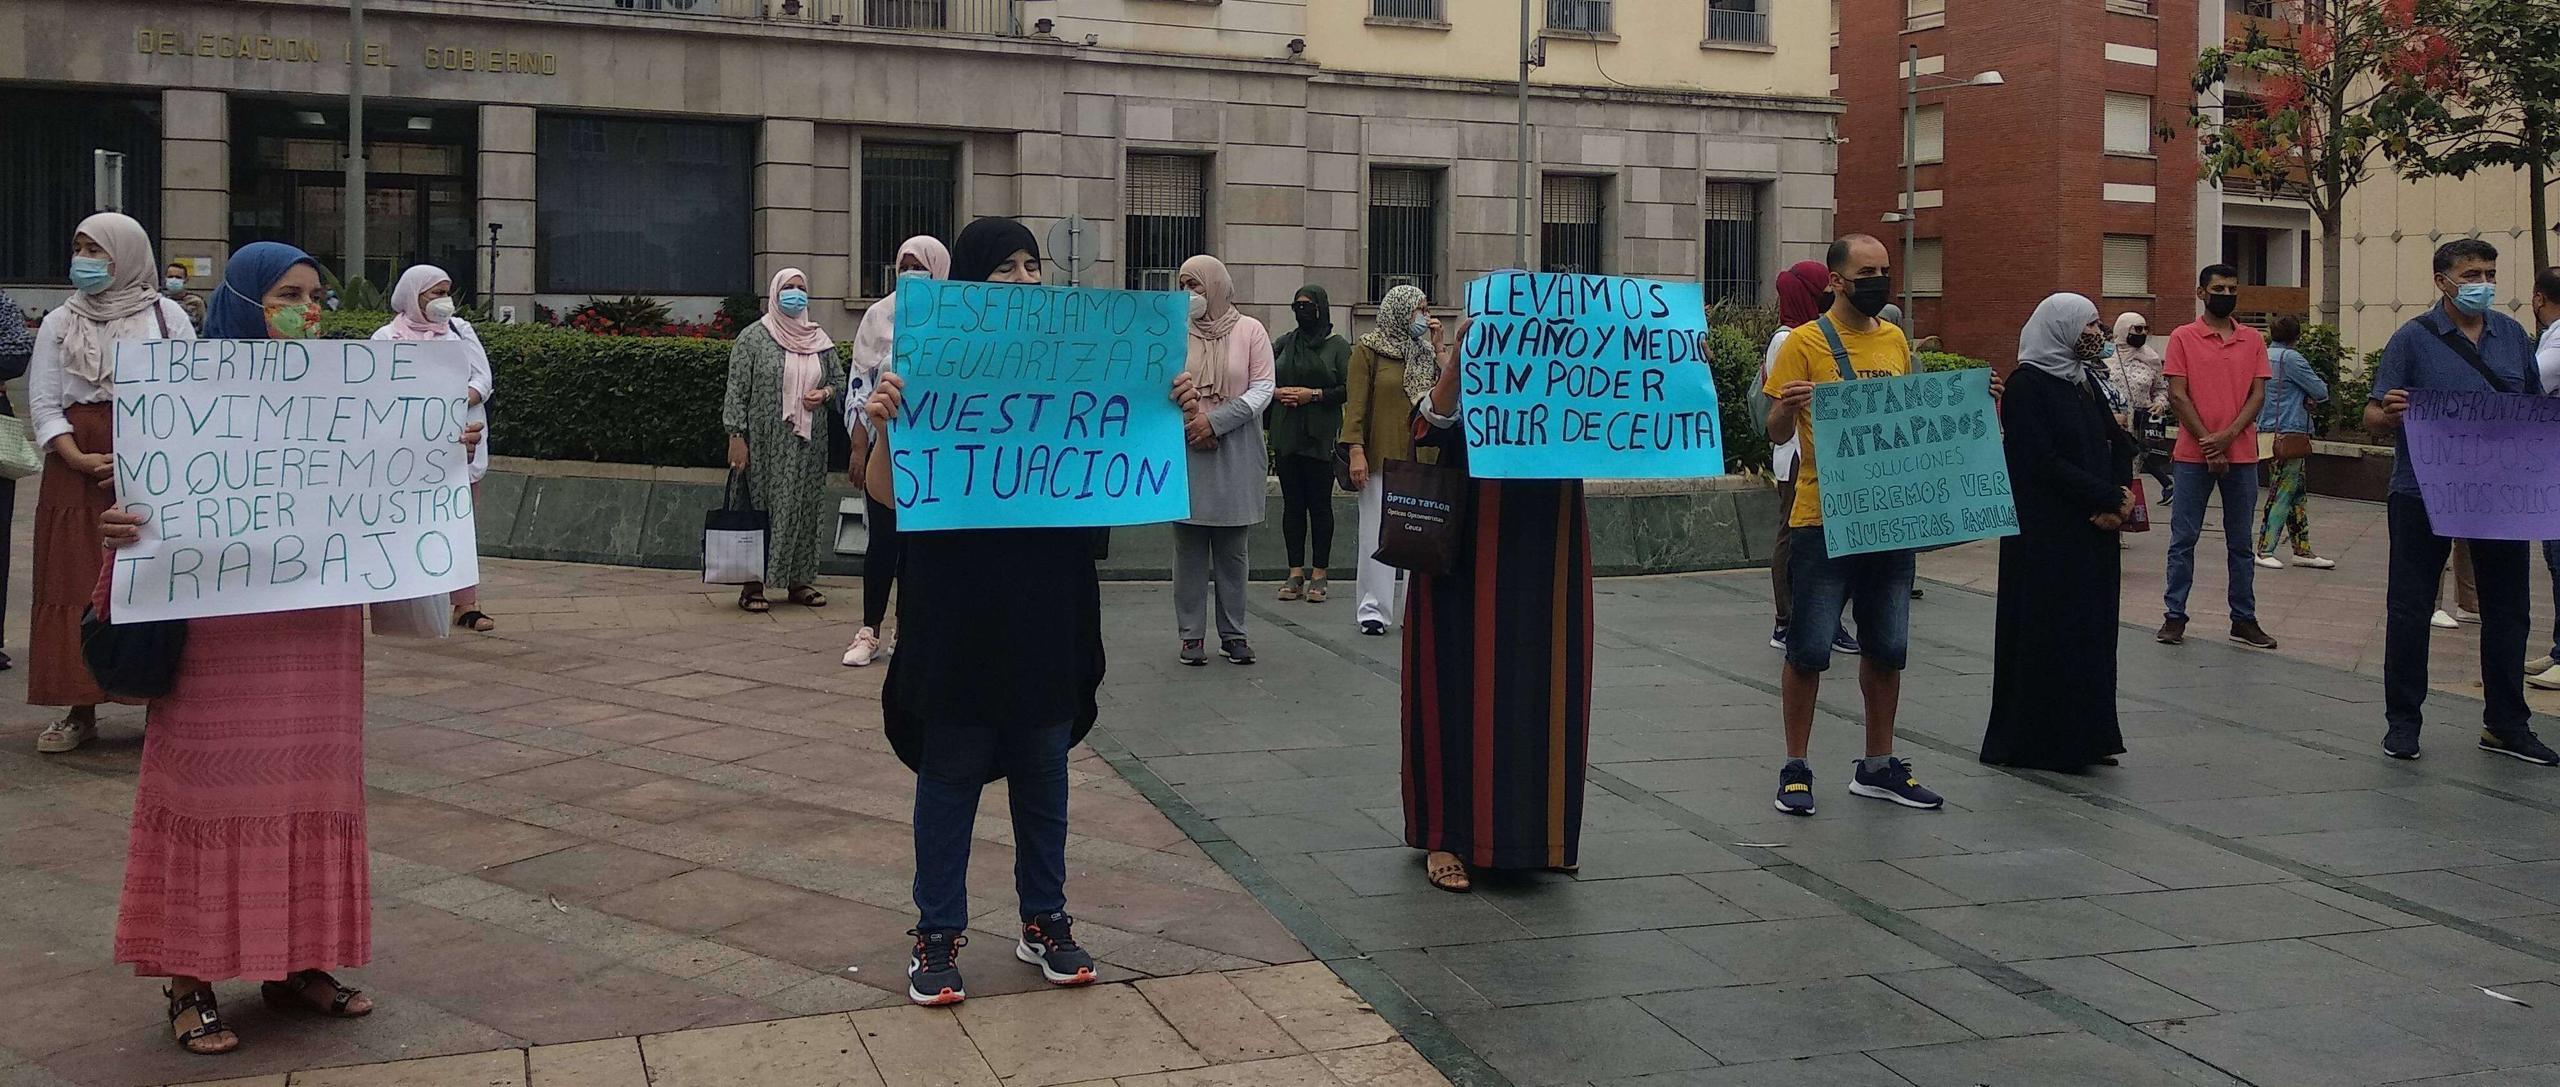 DELEGACION DEL GOBIERNO
LIBERTAD DE
MOVIMIENTOS
NO QUEREMOS
PERDER NUSTRO
TRABAJO
DESEARIAMOS
REGULARIZAR
NUESTRA
SITUACION
LLEVAMOS
UN AÑO Y MEDIO
SIN PODER
SALIR DE CEUTA
ÓPTICA TAYLOR
Ópticos Optometristas
Ceuta
TTSON
ESTAMOS
ATRAPADOS.
SIN SOLUCIONES
QUEREMOS VER
A NUESTRAS FAMILIAS
PUMA
UNIDOS